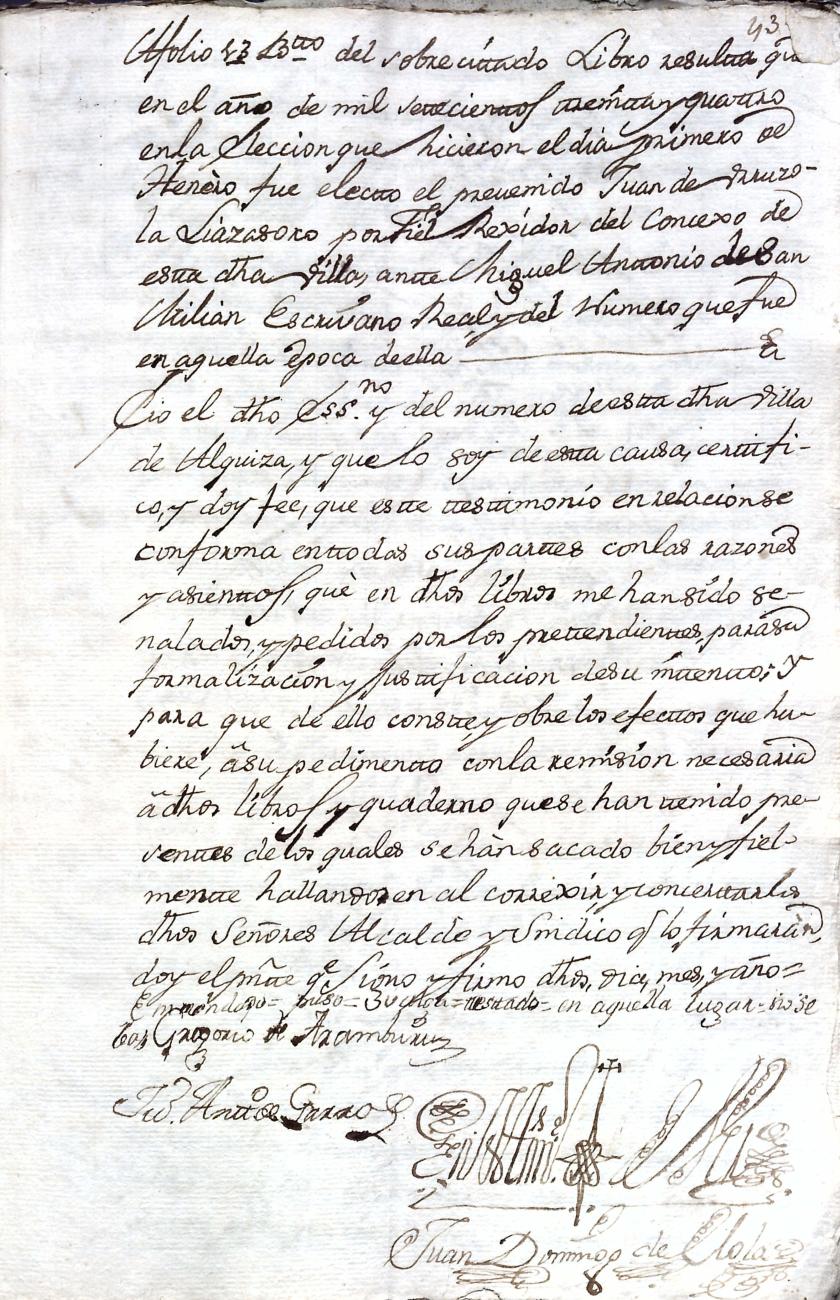 43
Afolio 13 B.tto del sobrecitado Libro resulta que
en el año de mil setecientos treinta y quattro
enla Eleccion que hicieron el dia primero de
Henèro fue electo el prevenido Juan de Aruzo-
la Liázasoro por Fiel Rexidor del Concexo de
esta dha Villa, ante Miguel Anttonio de San
Milián Escrivano Real y del Numero que fue
en aquella època deella
Eio el dho Ess.no y del numero deesta dha Villa
de Alquiza, y que lo soy deesta causa, certifi-
co, y doy fee, que este testimonio en relacion se
conforma entodas sus partes conlas razones
y asientos, què en dhos libros me han sido se-
nalados, y pedidos por los pretendientes, parasu
formalización y justificacion desu intento; y
para que de ello conste, y obre los efectos que hu-
biere, â su pedimento conla remisión necesaria
â dhos libros y quaderno que se han tenido pre-
sentes de los quales se hàn sacado bien y fiel-
mente hallandosen al correxir, y concertarlos
dhos Señores Alcalde y Sindico q̃ lo firmaràn,
doy el pñte q.e Signo y firmo dhos, dia, mes, y año=
Enmendado= = testado= en aquella lugar= no se
Gregorio de Aramburu
Antt.o de Garro
En testim.o de Verd
Juan Domingo de Olola